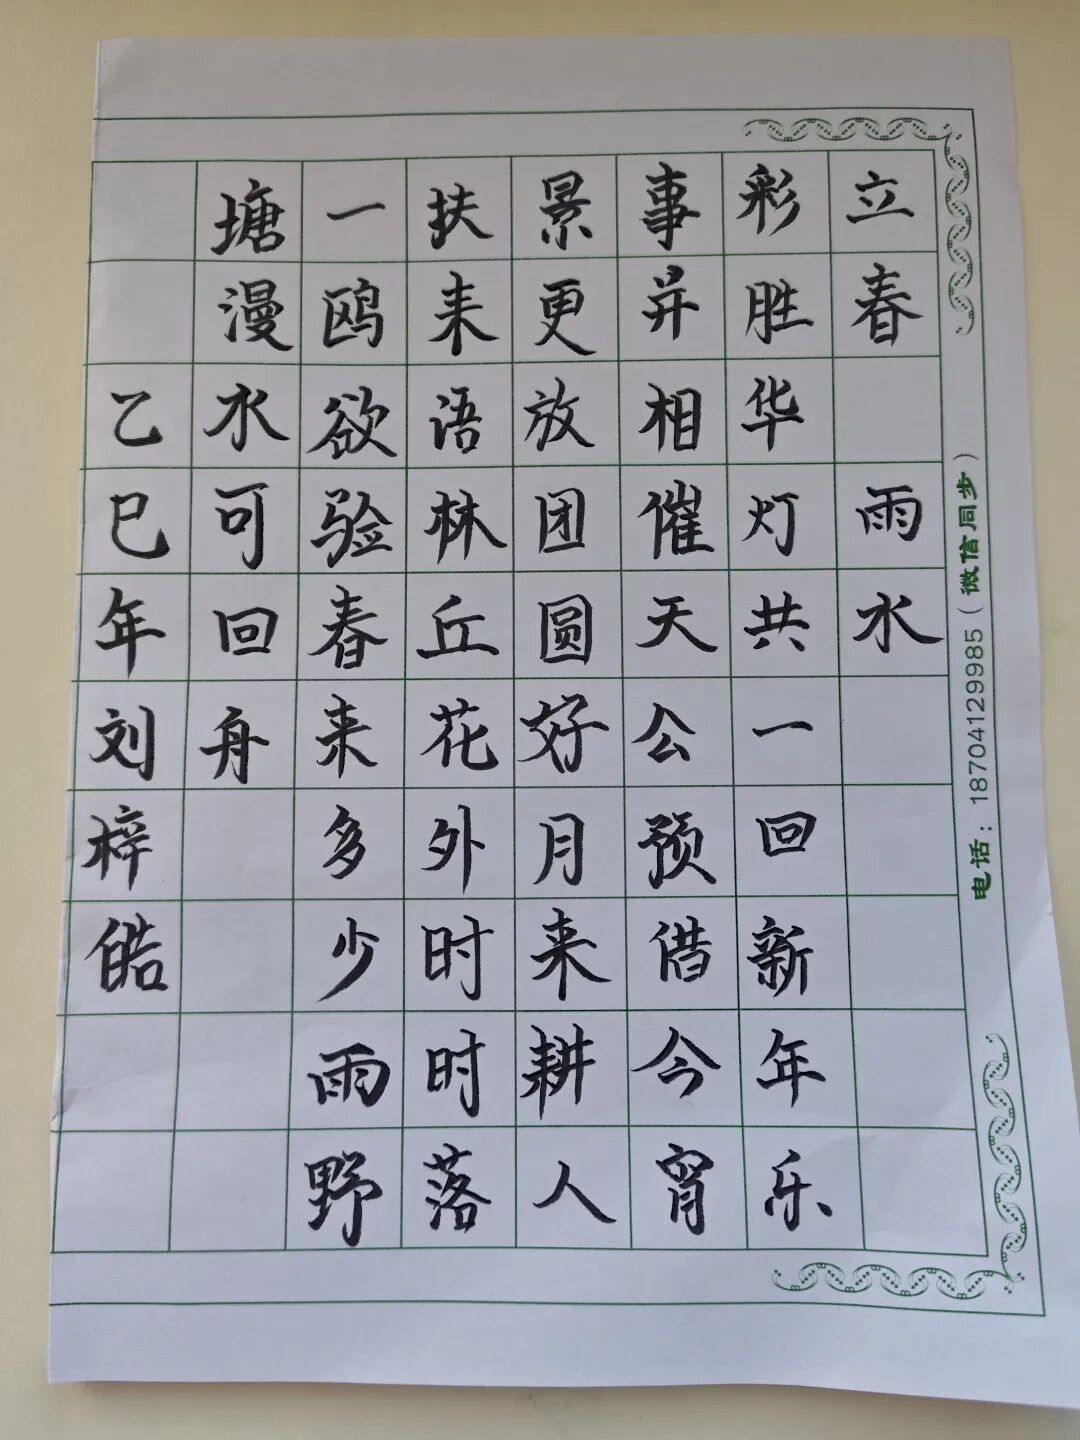 立春　雨水
彩胜华灯共一回新年乐
事并相催天公预借今宵
景更放团圆好月来耕人
扶耒语林丘花外时时落
一鸥欲验春来多少雨野
塘漫水可回舟
乙巳年刘梓皓
电话：18704129985（微信同步）